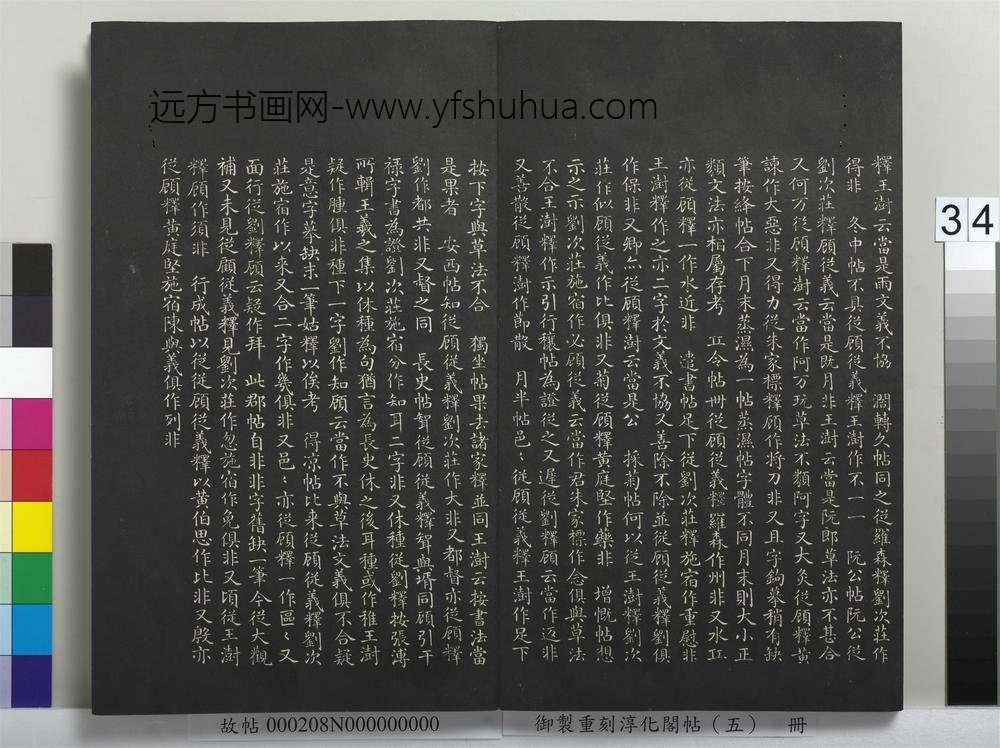 远方书画网-www.yfshuhua.com
釋王澍云當是雨文義不協 濶轉久帖同之從羅森釋劉次莊作
得非 冬中帖不具從顧從義釋王澍作不一一 阮公帖阮公從
劉次莊釋顧從義云當是既月非王澍云當是阮郎草法亦不甚合
又何万從顧釋澍云當作阿万玩草法不類阿字又大灸從顧釋黃
諫作大惡非又得力從朱家標釋顧作將刀非又且字鉤摹稍有缺
筆按絳帖合下月末蒸濕為一帖蒸濕帖字體不同月末則大小正
類文法亦相屬存考 㠪令帖卌從顧從義釋羅森作州非又水㠪
亦從顧釋一作水近非 遠書帖足下從劉次莊釋施宿作重慰非
王澍釋作之亦二字於文義不協又善除不除並從顧從義釋劉俱
作保非又卿亦從顧釋澍云當是公 採菊帖何以從王澍釋劉次
莊作似顧從義作比俱非又菊從顧釋黃庭堅作藥非 增慨帖想
示之示劉次莊施宿作必顧從義云當作君朱家標作念俱與草法
不合王澍釋作示引行穰帖為證從之又遲從劉釋顧云當作返非
又善散從顧釋澍作節散 月半帖邑〻從顧從義釋王澍作足下
按下字與草法不合 獨坐帖果去諸家釋並同王澍云按書法當
是果者 安西帖知從顧從義釋劉次莊作大非又都督亦從顧釋
劉作都共非又督之同 長史帖聟從顧從義釋聟與壻同顧引干
祿字書為證劉次莊施宿分作知耳二字非又休種從劉釋按張溥
所輯王羲之集以休種為句猶言為長史休之後耳種或作稚王澍
疑作腫俱非種下一字劉作知顧云當作不與草法文義俱不合疑
是意字摹缺末一筆姑釋以俟考 得涼帖比来從顧從義釋劉次
莊施宿作以来又合二字作幾俱非又邑〻亦從顧釋一作區〻又
面行從劉釋顧云疑作拜 此郡帖自非非字舊缺一筆今從大觀
補又未見從顧從義釋見劉次莊作忽施宿作免俱非又頃從王澍
釋顧作須非 行成帖以從從顧從義釋以黃伯思作比非又啟亦
從顧釋黃庭堅施宿陳與義俱作列非
34
故帖 000208N000000000
御製重刻淳化閣帖（五） 冊